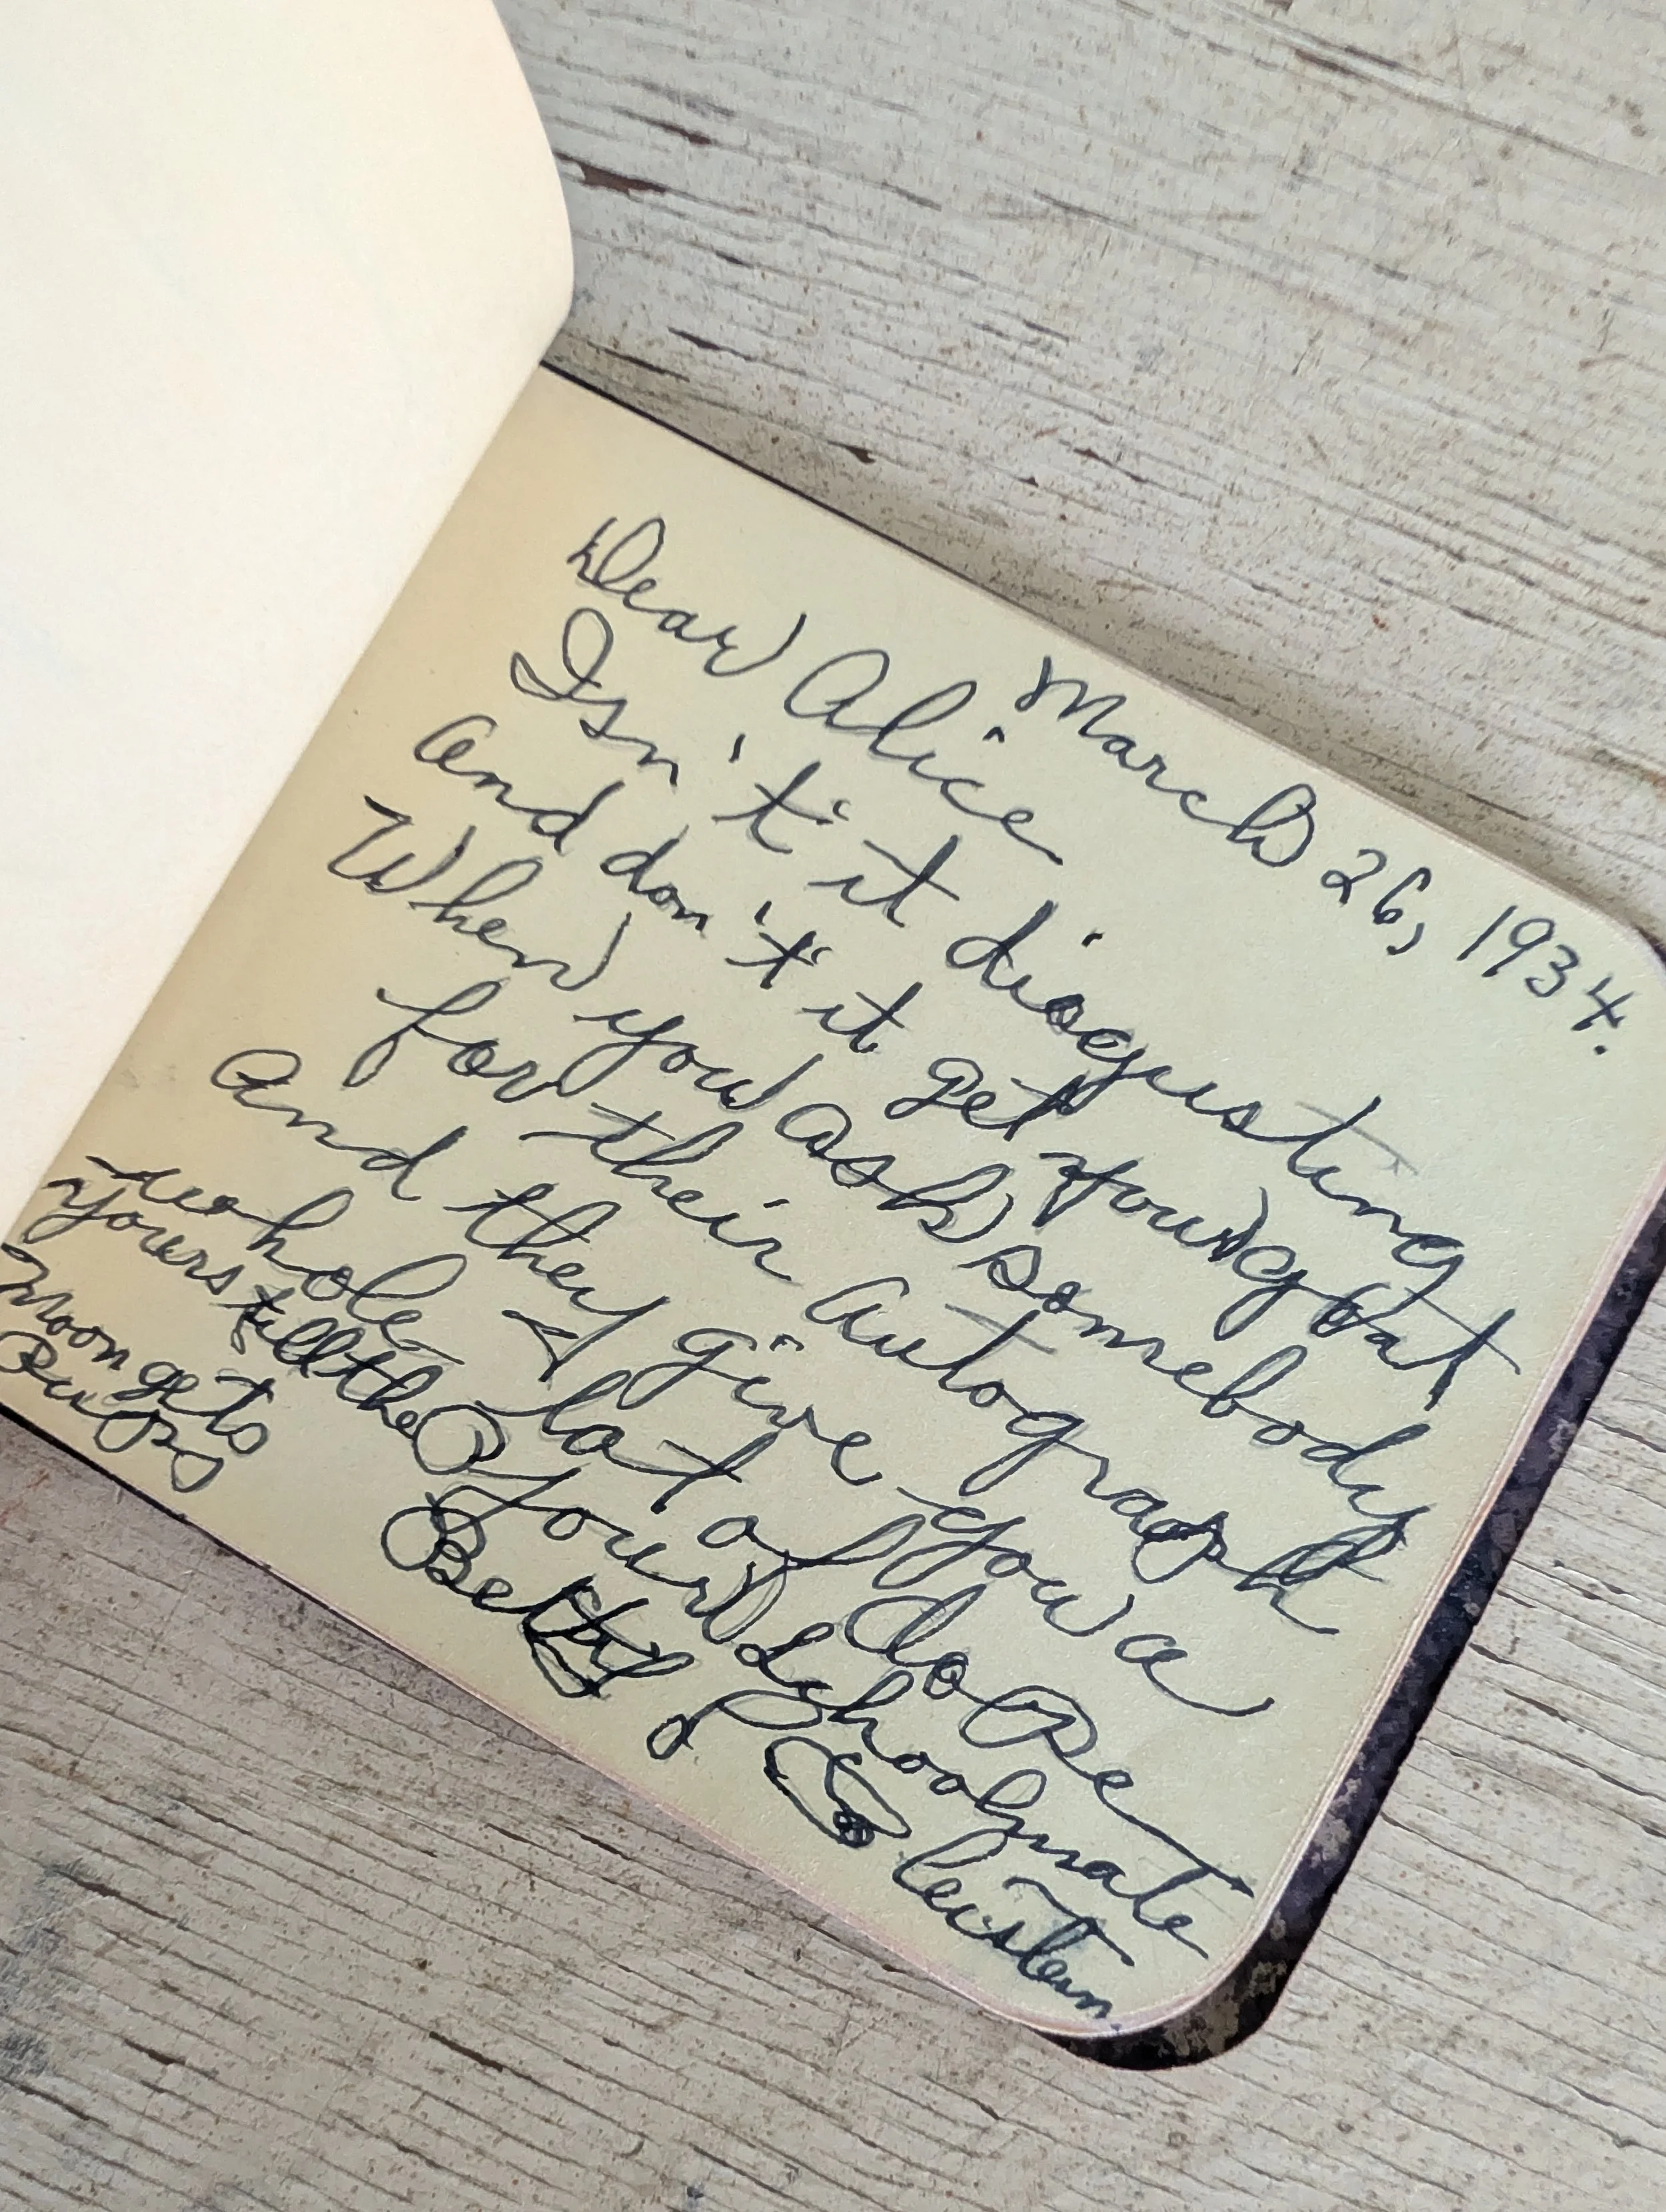 March 26, 1934.
Dear Alice
Isn't it disgusting
and don't it get your goat
When you ask somebody
for their autograph
And they give you a
whole lot of dope
Your Schoolmate
Betty
Yours till the
Moon gets
Pups